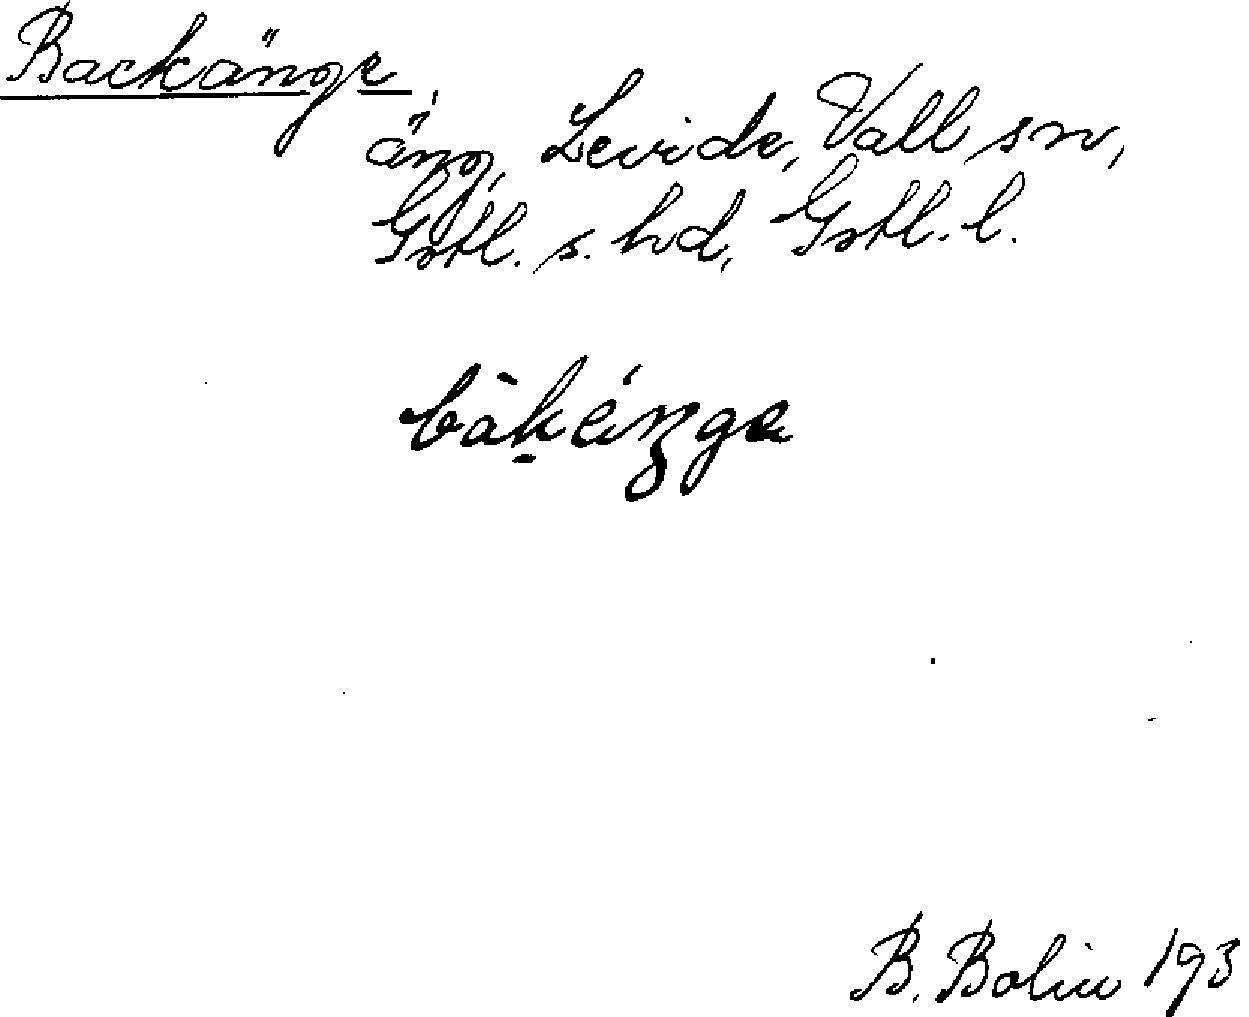 Backänge,
äng, Levide, Vall sn,
Gotl. s. hd, Gotl. l.
B. Bolin 193